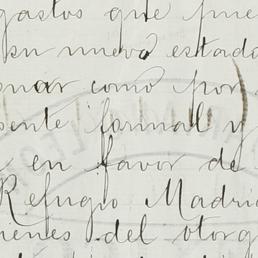 gastos que pue
su nuevo estado
gnar como por
sente formal y
en favor de
Refugio Madri
nenes del otorg